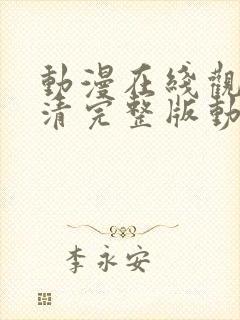 動漫在綫觀
清完整版動
李永安